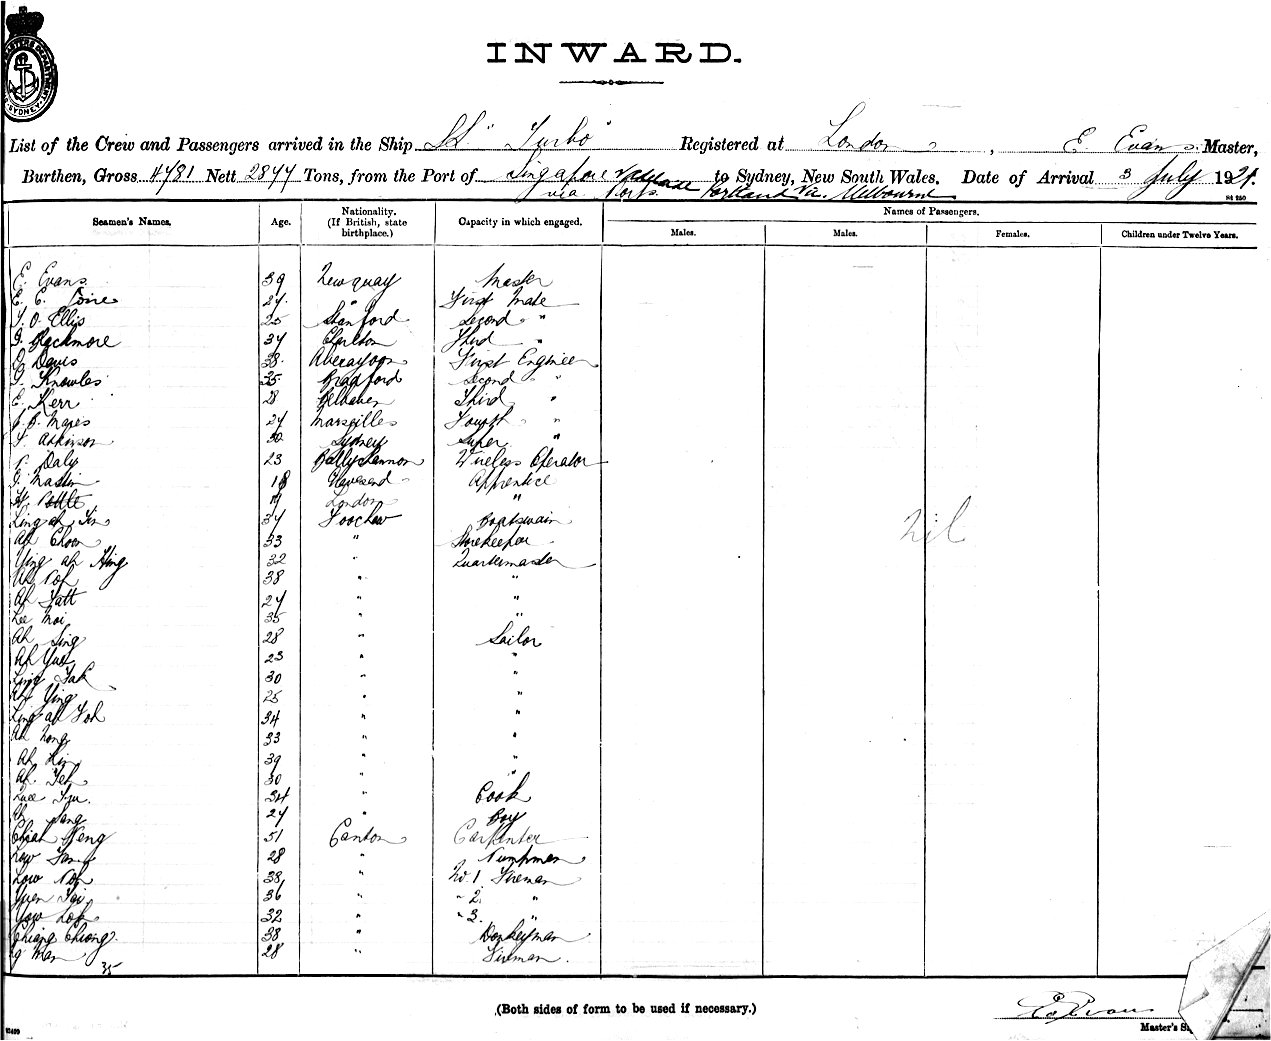 INWARD.
List of the Crew and Passengers arrived in the Ship SS "Turbo" Registered at London, E. Evans Master,
Burthen, Gross 4781 Nett 2844 Tons, from the Port of Singapore to Sydney, New South Wales. Date of Arrival 3 July 1924.
via Ports Portland Via. Melbourne
Seamen's Names. Age. Nationality. (If British, state birthplace.) Capacity in which engaged. Names of Passengers.
Males. Males. Females. Children under Twelve Years.
E. Evans 39 Newquay Master
E. C. 24 " First Mate
T. O. Ellis 25 Stanford Second "
Blackmore 34 Charlton Third "
D. Davis 38 Aberayon First Engineer
Knowles 35 Bradford Second "
E. Kerr 28 Third "
24 Marseilles Fourth "
Atkinson 30 Sydney Super "
Daly 23 Ballyshannon Wireless Operator
Martin 18 Gravesend Apprentice
19 London "
Ling ah 34 Foochow Boatswain
Ah Choon 33 " Storekeeper
Ying ah Hing 32 " Quartermaster
Ah 38 " "
Ah Tatt 24 " "
Lee Moi 35 " "
Ah Sing 28 " Sailor
Ah Yue 23 " "
Ling Tak 30 " "
Ah Ying 25 " "
Ling ah Toh 34 " "
Ah 33 " "
Ah 39 " "
Ah Teh 30 " "
34 " Cook
Ah Sang 24 " Boy
Chiah Heng 51 Canton Carpenter
Low 28 " Pumpman
Low 38 " No 1. Fireman
Yuen 36 " " 2. "
Yow Lok 32 " " 3. "
Chiang Chiong 38 " Donkeyman
Man 28 " Fireman.
35
Nil
(Both sides of form to be used if necessary.)
E. Evans
Master's